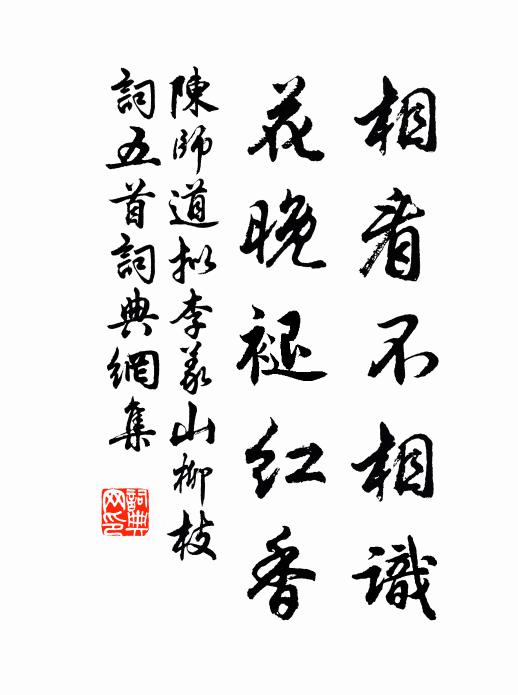 相看不相識
花晚褪红香
陳師道拟李義山柳枝
詞五首詞典網集
詞典
网印